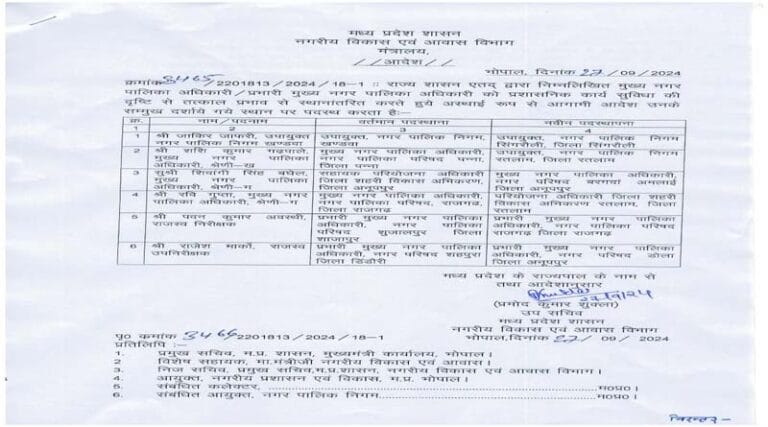 मध्य प्रदेश शासन
नगरीय विकास एवं आवास विभाग
मंत्रालय,
//आदेश//
भोपाल, दिनांक 27/09/2024
क्रमांक 3465/2201813/2024/18-1 :: राज्य शासन एतद् द्वारा निम्नलिखित मुख्य नगर
पालिका अधिकारी/प्रभारी मुख्य नगर पालिका अधिकारी को प्रशासनिक कार्य सुविधा की
दृष्टि से तत्काल प्रभाव से स्थानांतरित करते हुये अस्थाई रूप से आगामी आदेश उनके
सम्मुख दर्शाये गये स्थान पर पदस्थ करता है:-
क्र. नाम/पदनाम वर्तमान पदस्थाना नवीन पदस्थापना
1 2 3 4
1 श्री जाकिर जाफरी, उपायुक्त उपायुक्त, नगर पालिक निगम, उपायुक्त, नगर पालिक निगम
नगर पालिक निगम खण्डवा खण्डवा सिंगरौली, जिला सिंगरौली
2 श्री शशि कुमार गढ़पाले, मुख्य नगर पालिका अधिकारी, उपायुक्त, नगर पालिक निगम
मुख्य नगर पालिका नगर पालिका परिषद पन्ना, रतलाम, जिला रतलाम
अधिकारी, श्रेणी-ख जिला पन्ना
3 सुश्री शिवांगी सिंह बघेल, सहायक परियोजना अधिकारी मुख्य नगर पालिका अधिकारी,
मुख्य नगर पालिका जिला शहरी विकास अभिकरण, नगर परिषद बरगवां अमलाई
अधिकारी, श्रेणी-ग जिला अनूपपुर जिला अनूपपुर
4 श्री रवि गुप्ता, मुख्य नगर मुख्य नगर पालिका अधिकारी, परियोजना अधिकारी जिला शहरी
पालिका अधिकारी, श्रेणी-ग नगर पालिका परिषद, राजगढ़, विकास अभिकरण रतलाम, जिला
जिला राजगढ़ रतलाम
5 श्री पवन कुमार अवस्थी, प्रभारी मुख्य नगर पालिका प्रभारी मुख्य नगर पालिका
राजस्व निरीक्षक अधिकारी, नगर पालिका अधिकारी, नगर पालिका परिषद
परिषद शुजालपुर जिला राजगढ़ जिला राजगढ़
शाजापुर
6 श्री राजेश मार्को, राजस्व प्रभारी मुख्य नगर पालिका प्रभारी मुख्य नगर पालिका
उपनिरीक्षक अधिकारी, नगर परिषद शहपुरा अधिकारी, नगर परिषद डोला
जिला डिंडौरी जिला अनूपपुर
मध्य प्रदेश के राज्यपाल के नाम से
तथा आदेशानुसार
27/9/24
(प्रमोद कुमार शुक्ला)
उप सचिव
मध्य प्रदेश शासन
नगरीय विकास एवं आवास विभाग
पृ0 क्रमांक 3466/2201813/2024/18-1 भोपाल,दिनांक 27/09/2024
प्रतिलिपि :-
1. प्रमुख सचिव, म.प्र. शासन, मुख्यमंत्री कार्यालय, भोपाल।
2 विशेष सहायक, मा.मंत्रीजी नगरीय विकास एवं आवास।
3. निज सचिव, प्रमुख सचिव,म.प्र.शासन, नगरीय विकास एवं आवास विभाग।
4. आयुक्त, नगरीय प्रशासन एवं विकास, म.प्र. भोपाल।
5. संबंधित कलेक्टर, ........................ म०प्र०।
6. संबंधित आयुक्त, नगर पालिक निगम........................म०प्र०।
निरन्तर-